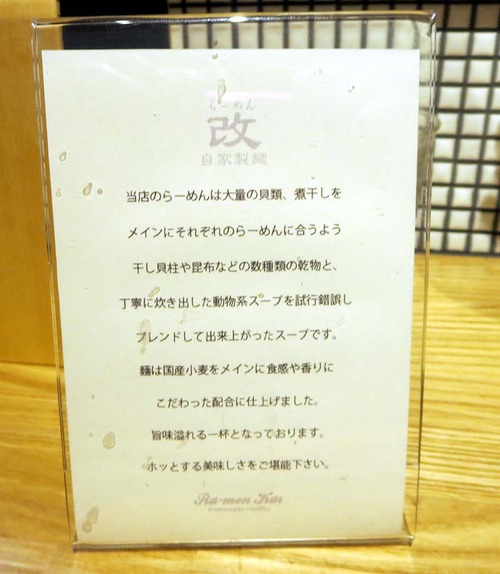 らーめん
改
自家製麺
当店のらーめんは大量の貝類、煮干しを
メインにそれぞれのらーめんに合うよう
干し貝柱や昆布などの数種類の乾物と、
丁寧に炊き出した動物系スープを試行錯誤し
ブレンドして出来上がったスープです。
麺は国産小麦をメインに食感や香りに
こだわった配合に仕上げました。
旨味溢れる一杯となっております。
ホッとする美味しさをご堪能下さい。
Ra-men Kai
homemade noodles